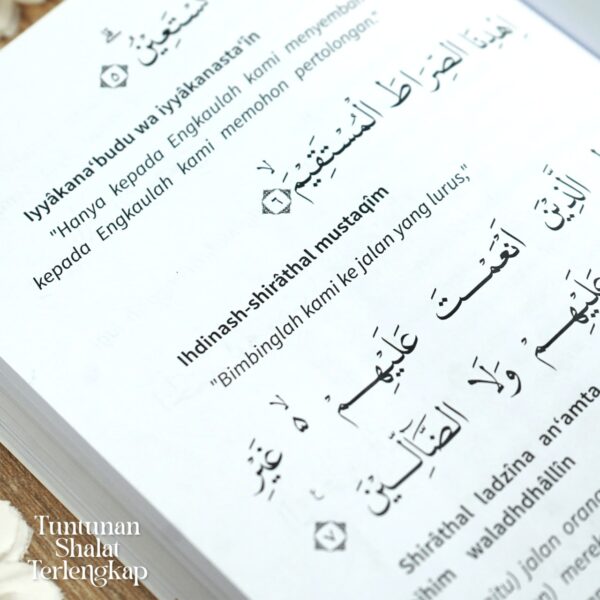 نَسْتَعِيْنُ ۗ ٥
Iyyâkana'budu wa iyyâkanasta'in
"Hanya kepada Engkaulah kami menyembah
kepada Engkaulah kami memohon pertolongan."
اِهْدِنَا الصِّرَاطَ الْمُسْتَقِيْمَ ۙ ٦
Ihdinash-shirâthal mustaqim
"Bimbinglah kami ke jalan yang lurus,"
الَّذِيْنَ اَنْعَمْتَ عَلَيْهِمْ ەۙ غَيْرِ
عَلَيْهِمْ وَلَا الضَّاۤلِّيْنَ ࣖ ٧
Shirâthal ladzîna an'amta
waladhdhâllîn
jalan orang
Tuntunan
Shalat
Terlengkap